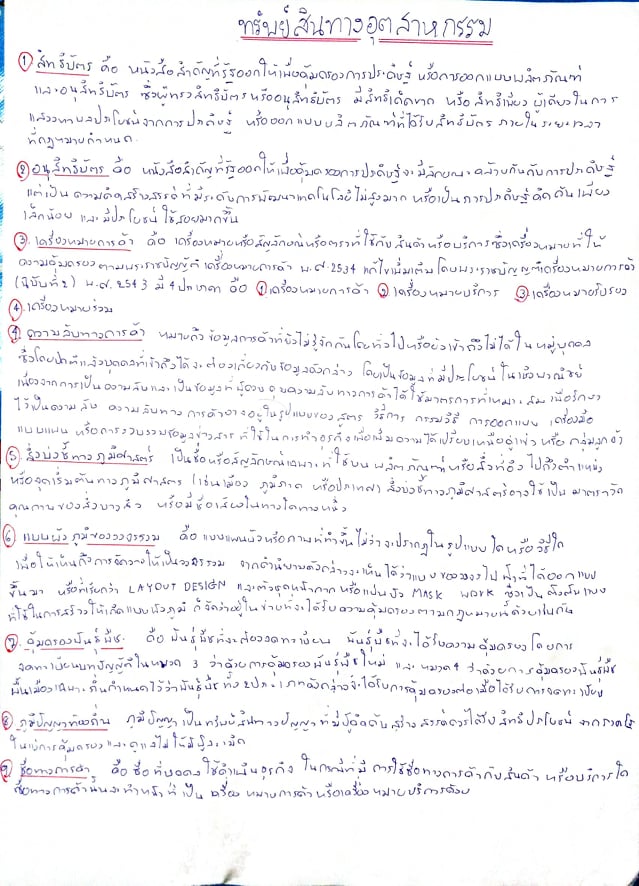 ทรัพย์สินทางอุตสาหกรรม
① สิทธิบัตร คือ หนังสือสำคัญที่รัฐออกให้เพื่อคุ้มครองการประดิษฐ์ หรือการออกแบบผลิตภัณฑ์
และอนุสิทธิบัตร ซึ่งผู้ทรงสิทธิบัตรหรืออนุสิทธิบัตร มีสิทธิเด็ดขาด หรือ สิทธิเพียงผู้เดียวในการ
แสวงหาผลประโยชน์จากการประดิษฐ์ หรือออกแบบผลิตภัณฑ์ที่ได้รับสิทธิบัตร ภายในระยะเวลา
ที่กฎหมายกำหนด
② อนุสิทธิบัตร คือ หนังสือสำคัญที่รัฐออกให้เพื่อคุ้มครองการประดิษฐ์จะมีลักษณะคล้ายกันกับการประดิษฐ์
แต่เป็นความคิดสร้างสรรค์ที่มีระดับการพัฒนาเทคโนโลยีไม่สูงมาก หรือเป็นการประดิษฐ์คิดค้นเพียง
เล็กน้อย และมีประโยชน์ใช้สอยมากขึ้น
③ เครื่องหมายการค้า คือ เครื่องหมายหรือสัญลักษณ์หรือตราที่ใช้กับสินค้าหรือบริการซึ่งเครื่องหมายที่ให้
ความคุ้มครองตามพระราชบัญญัติ เครื่องหมายการค้า พ.ศ.2534 แก้ไขเพิ่มเติมโดยพระราชบัญญัติเครื่องหมายการค้า
(ฉบับที่2) พ.ศ.2543 มี 4 ประเภท คือ ① เครื่องหมายการค้า ② เครื่องหมายบริการ ③ เครื่องหมายรับรอง
④ เครื่องหมายร่วม
④ ความลับทางการค้า หมายถึง ข้อมูลการค้าที่ยังไม่รู้จักกันโดยทั่วไปหรือยังเข้าถึงไม่ได้ในหมู่บุคคล
ซึ่งโดยปกติแล้วบุคคลที่เข้าถึงได้จะต้องเกี่ยวกับข้อมูลดังกล่าว โดยเป็นข้อมูลที่มีประโยชน์ในเชิงพาณิชย์
เนื่องจากการเป็นความลับและเป็นข้อมูลที่ผู้ควบคุมความลับทางการค้าได้ใช้มาตรการที่เหมาะสมเพื่อรักษา
ไว้เป็นความลับ ความลับทางการค้าอาจอยู่ในรูปแบบของสูตร วิธีการ กรรมวิธี การออกแบบ เครื่องมือ
แบบแผน หรือการรวบรวมข้อมูลข่าวสารที่ใช้ในการทำธุรกิจเพื่อเพิ่มความได้เปรียบเหนือคู่แข่ง หรือ กลุ่มลูกค้า
⑤ สิ่งบ่งชี้ทางภูมิศาสตร์ เป็นชื่อหรือสัญลักษณ์เฉพาะที่ใช้บนผลิตภัณฑ์หรือสิ่งที่อิงไปถึงตำแหน่ง
หรือจุดเริ่มต้นทางภูมิศาสตร์ (เช่นเมือง ภูมิภาค หรือประเทศ) สิ่งบ่งชี้ทางภูมิศาสตร์อาจใช้เป็นมาตราวัด
คุณภาพของสิ่งบางสิ่ง หรือมีชื่อเสียงในทางใดทางหนึ่ง
⑥ แบบผังภูมิของวงจรรวม คือ แบบแผนผังหรือภาพที่ทำขึ้นไม่ว่าจะปรากฏในรูปแบบใดหรือวิธีใด
เพื่อให้เห็นถึงการจัดวางให้เป็นวงจรรวม จากคำนิยามดังกล่าวจะเห็นได้ว่าแบบของวงจรไฟฟ้าที่ได้ออกแบบ
ขึ้นมา หรือที่เรียกว่า LAYOUT DESIGN และตัวชุดหน้ากากหรือแผ่นบัง MASK WORK ซึ่งเป็นตัวต้นแบบ
ที่ใช้ในการสร้างให้เกิดแบบผังภูมิ ก็จัดว่าอยู่ในข่ายที่จะได้รับความคุ้มครองตามกฎหมายนี้ด้วยเช่นกัน
⑦ คุ้มครองพันธุ์พืช คือ พันธุ์พืชที่จะต้องจดทะเบียน พันธุ์พืชที่จะได้รับความคุ้มครองโดยการ
จดทะเบียนบทบัญญัติในหมวด 3 ว่าด้วยการคุ้มครองพันธุ์พืชใหม่ และหมวด4 ว่าด้วยการคุ้มครองพันธุ์พืช
พื้นเมืองเฉพาะถิ่นกำหนดไว้ว่าพันธุ์พืชทั้ง2ประเภทดังกล่าวจะได้รับการคุ้มครองต่อเมื่อได้รับการจดทะเบียน
⑧ ภูมิปัญญาท้องถิ่น ภูมิปัญญาเป็นทรัพย์สินทางปัญญาที่มีผู้คิดค้น สร้างสรรค์ควรได้รับสิทธิประโยชน์ จากภาครัฐ
ในแง่การคุ้มครองและดูแลไม่ให้มีผู้ละเมิด
⑨ ชื่อทางการค้า คือ ชื่อที่บุคคลใช้ดำเนินธุรกิจ ในกรณีที่มีการใช้ชื่อทางการค้ากับสินค้า หรือบริการใด
ชื่อทางการค้านั้นจะทำหน้าที่เป็นเครื่องหมายการค้าหรือเครื่องหมายบริการด้วย